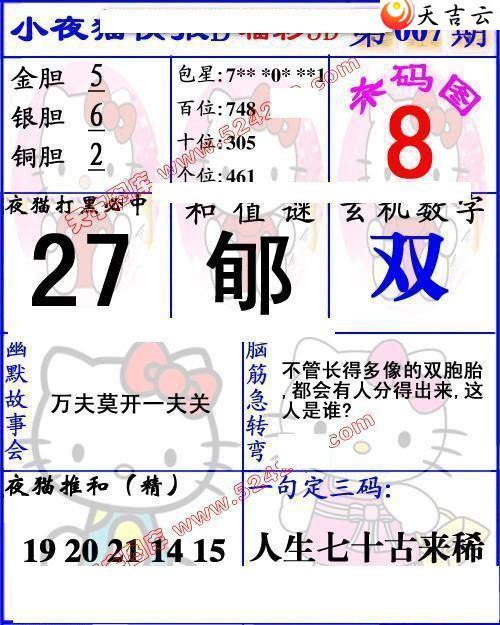 天吉云
小夜猫快报D 福彩3D 第007期
金胆 5
银胆 6
铜胆 2
包星:7** *0* **1
百位:748
十位:305
个位:461
来码图
8
夜猫打黑必中
27
和值谜
郇
玄机数字
双
幽默故事会
万夫莫开一夫关
脑筋急转弯
不管长得多像的双胞胎
,都会有人分得出来,这
人是谁?
夜猫推和(精)
19 20 21 14 15
一句定三码:
人生七十古来稀